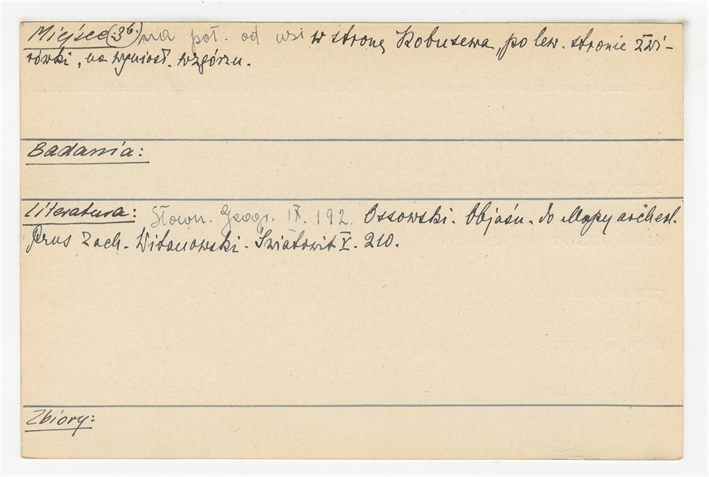 Miejsce (:3b:) na poł. od wsi w stronę Kobusewa, po lew. stronie żwi-
rówki, na wyniosł. wzgórzu.
Badania:
Literatura: Słown. Geogr. IX. 192. Ossowski. Objaśn. do Mapy archeol.
Prus Zach. Witanowski. Światowit V. 210.
Zbiory: